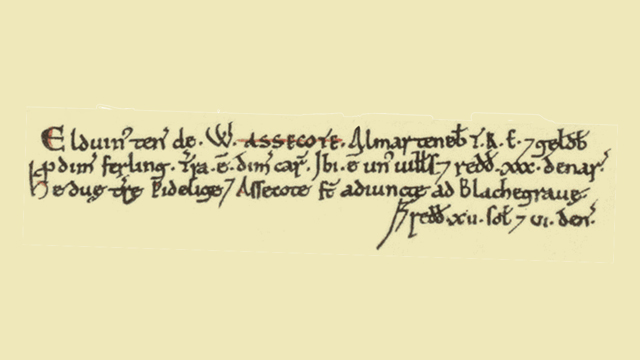 Elduin' ten' de .W. ASSECOTE. Almar teneƀ T.R.E. ⁊ geldƀ
ꝓ dim' ferling. Tra. ē. dim car'. Ibi. ē un' uiłłs. ⁊ redđ. xxx. denar'.
Hę duę tre Fidelige ⁊ Assecote st adiunctę ad Blachegrauę.
redđ. xv. soł ⁊ vi. den'.